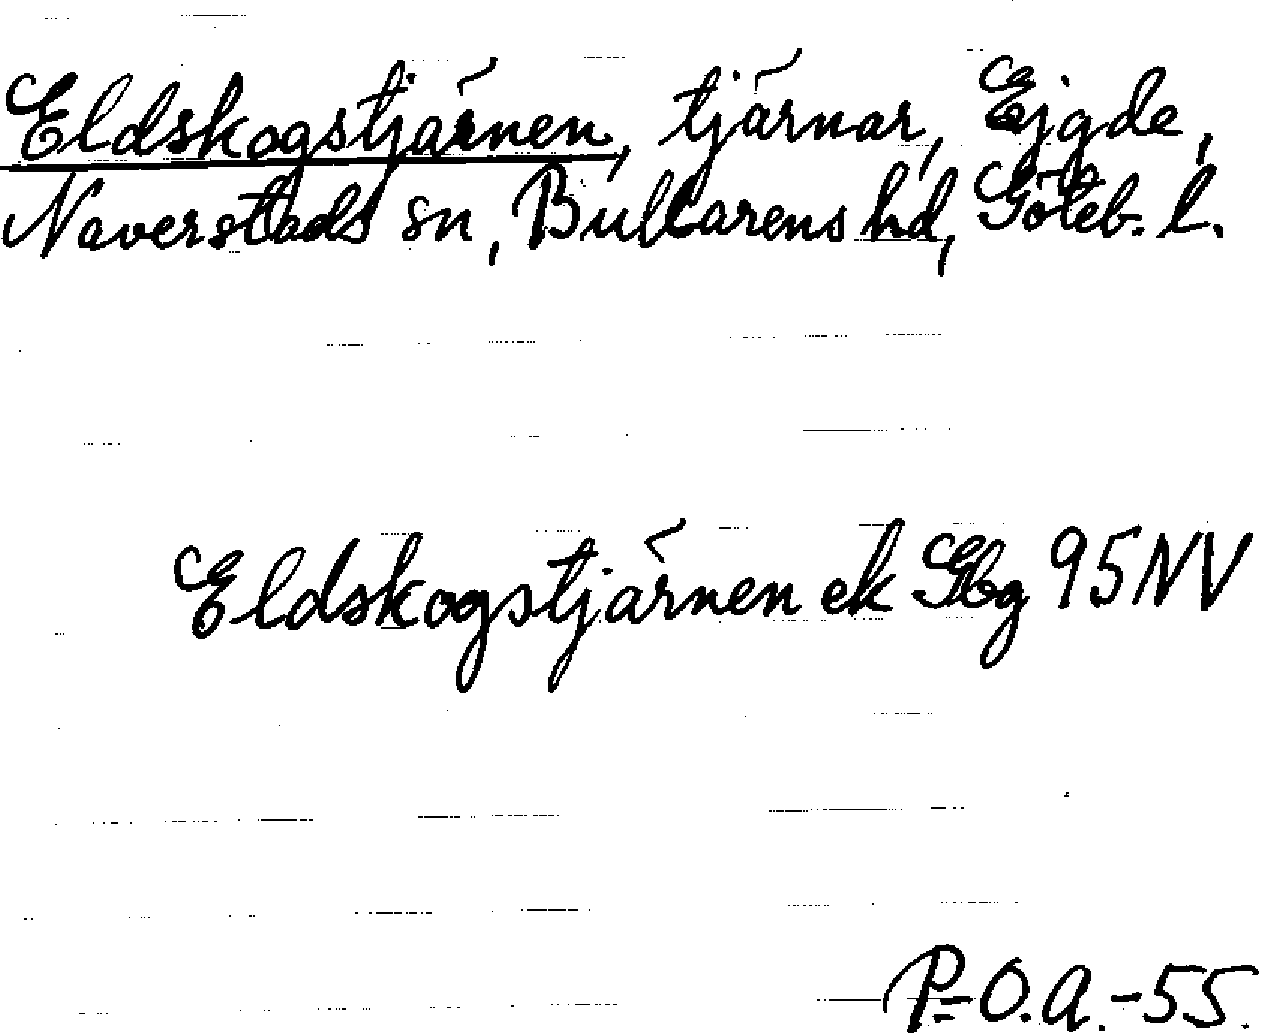 Eldskogstjärnen, tjärnar, Ejgde,
Naverstads sn, Bullarens hd, Göteb. l.
Eldskogstjärnen ek Gbg 95NV
P-O.A.-55.